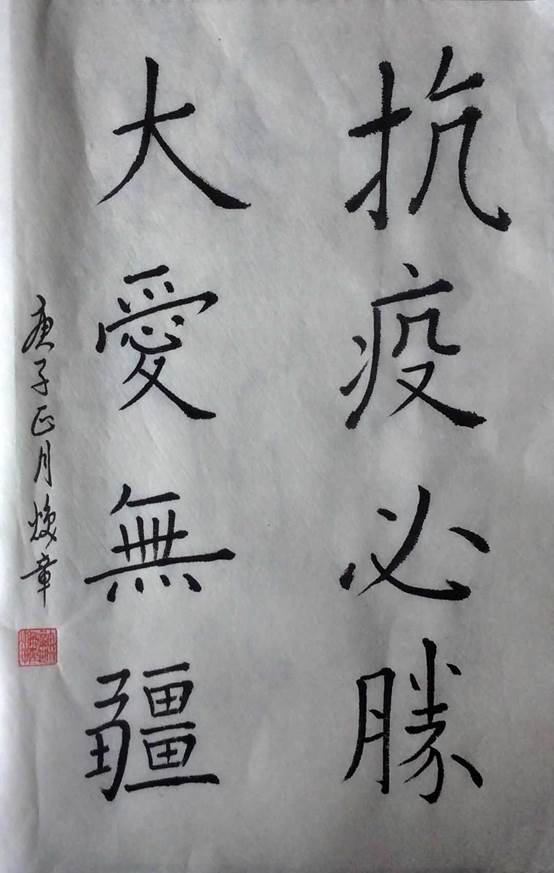 抗疫必勝
大愛無疆
庚子正月焕章